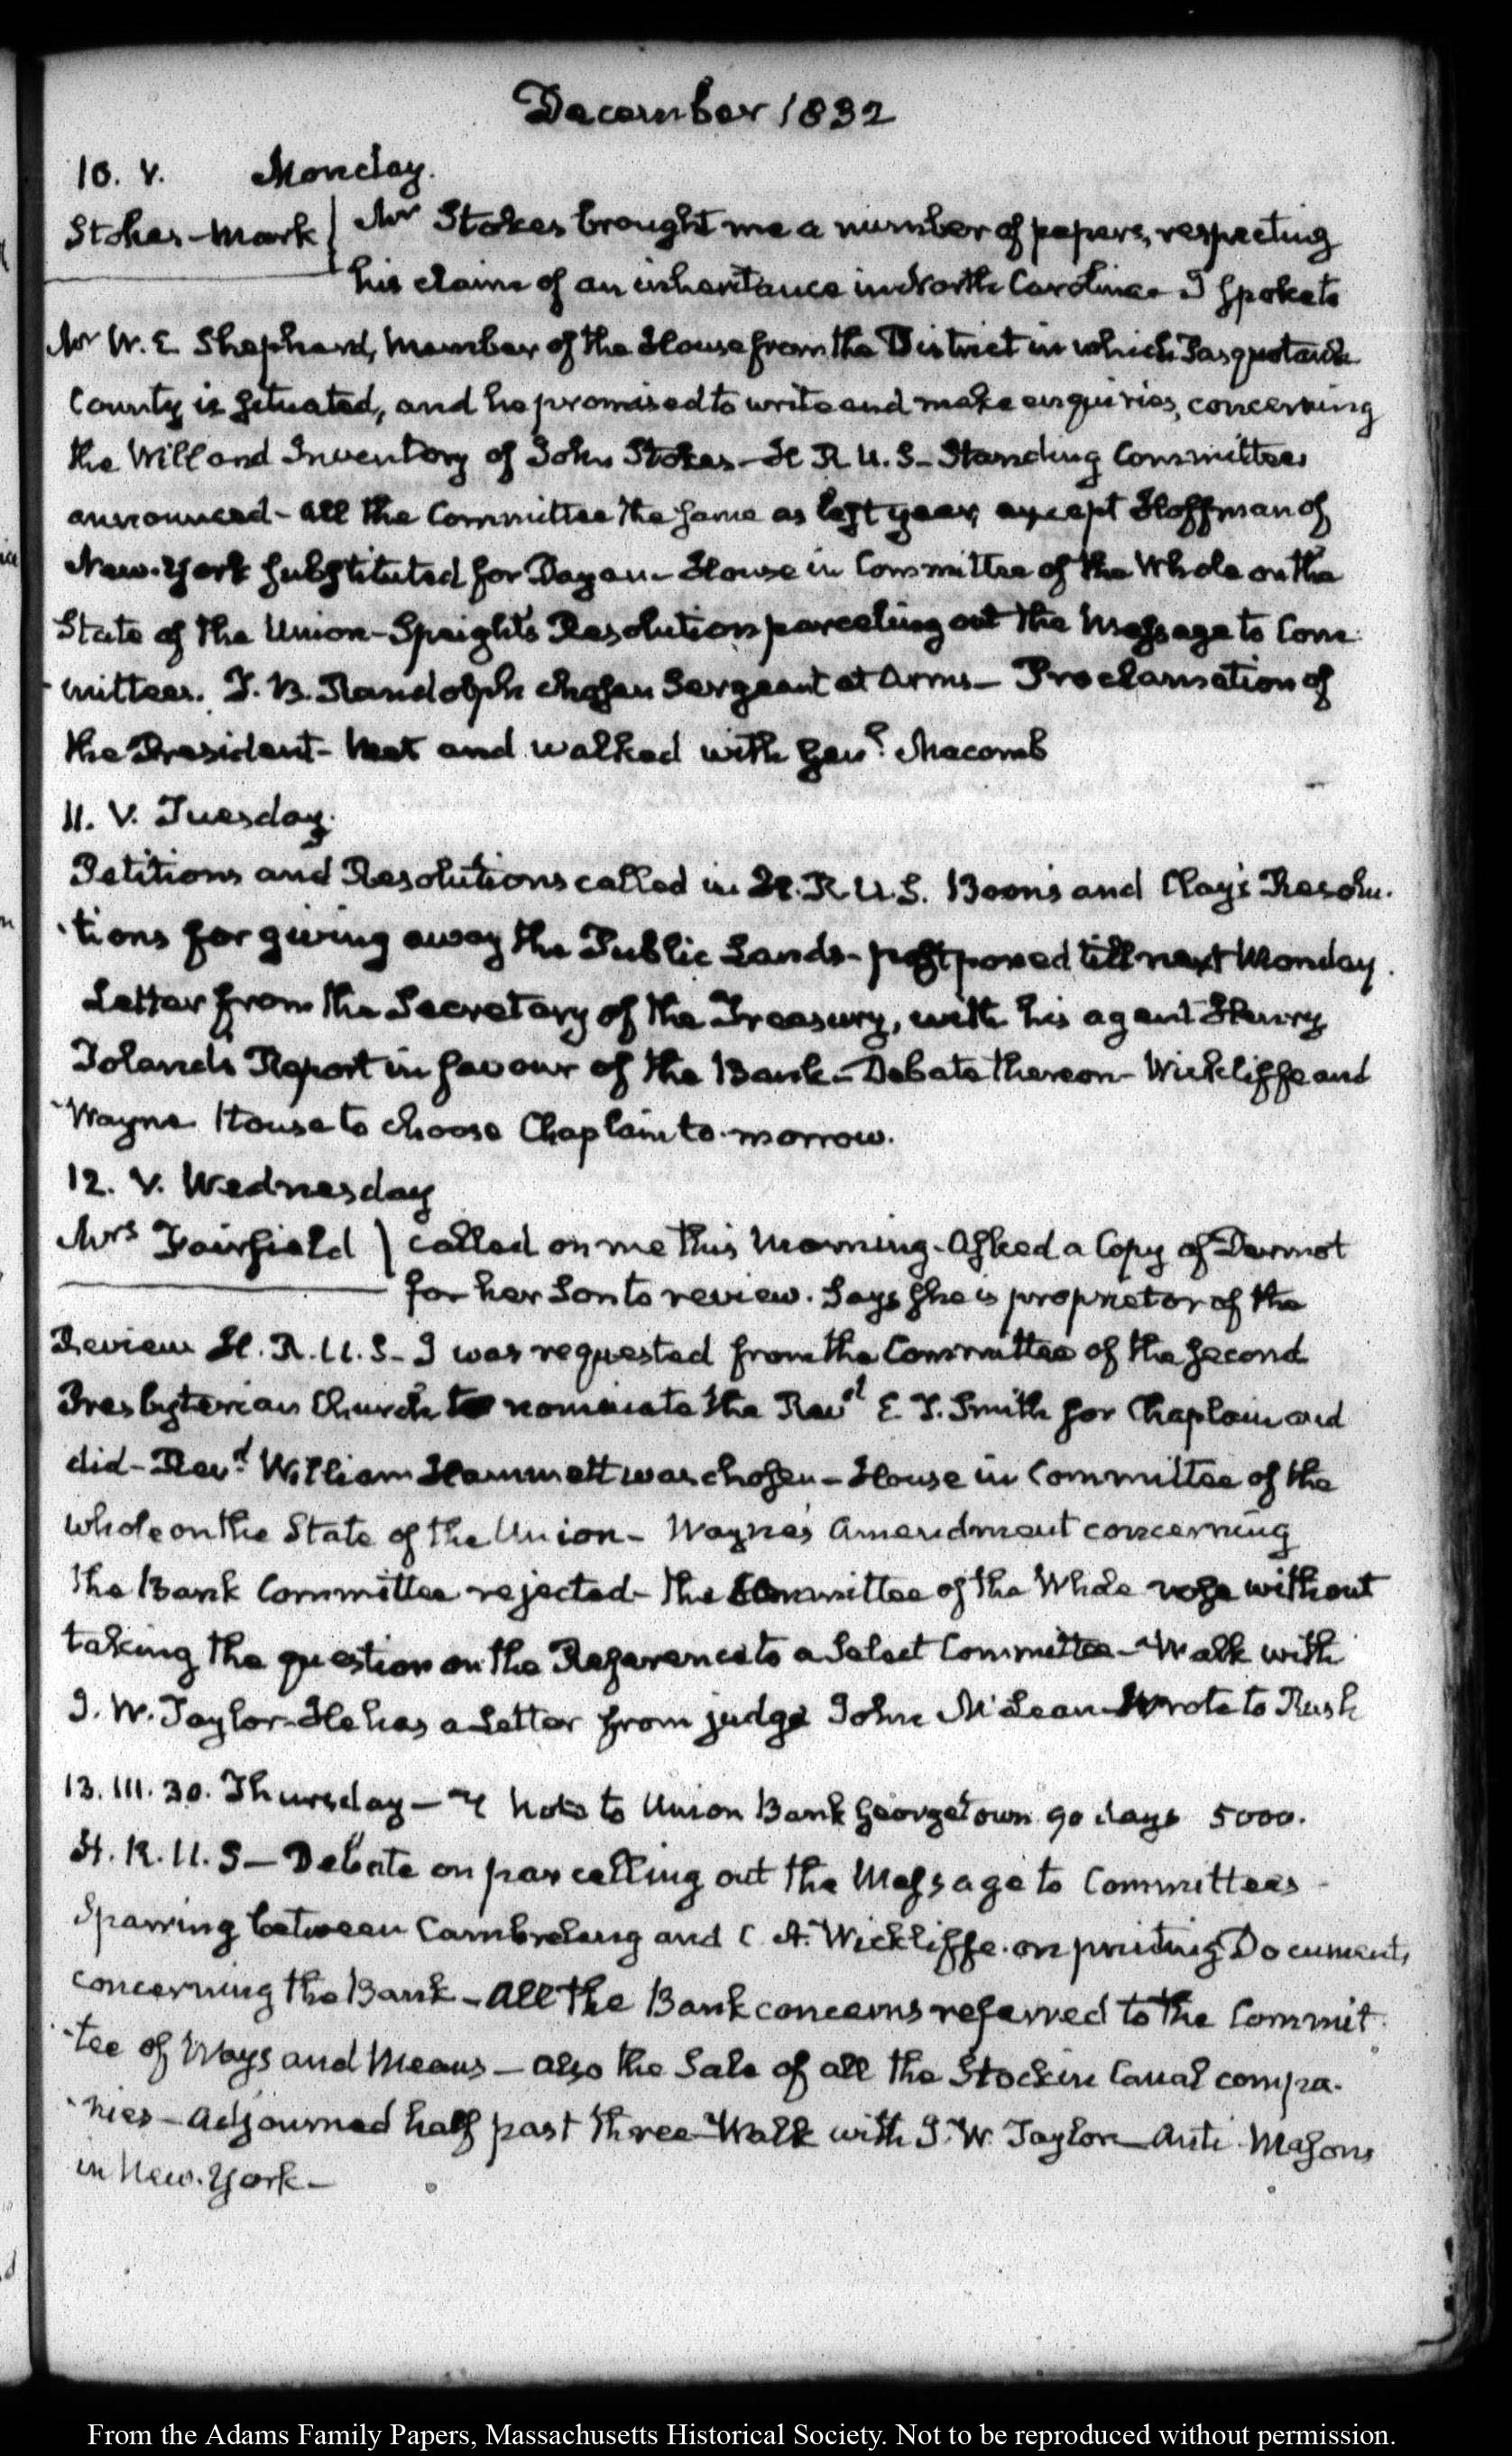 December 1832
10. V. Monday.
Stokes-Mark | Mr Stokes brought me a number of papers, respecting
his claim of an inheritance in North Carolina- I spoke to
Mr W. E Shephard, Member of the House from the District in which Pasquotank
County is situated, and he promised to write and make enquiries, concerning
the Will and Inventory of John Stokes- H R U. S- Standing Committees
announced- all the Committee the same as last year, except Hoffman of
New-York substituted for Dayan- House in Committee of the Whole on the
State of the Union- Speight's Resolution parcelling out the Message to Com-
-mittees. J. B. Randolph chosen Sergeant at Arms- Proclamation of
the President- Met and walked with Genl. Macomb
11. V. Tuesday.
Petitions and Resolutions called in H. R U.S. Boon's and Clay's Resolu-
-tions for giving away the Public Lands- postponed till next Monday.
Letter from the Secretary of the Treasury, with his agent Henry
Toland's Report in favour of the Bank- Debate thereon- Wickliffe and
Wayne House to choose Chaplain to-morrow.
12. V. Wednesday
Mrs Fairfield | called on me this Morning- Asked a Copy of Dermot
for her Son to review. Says she is proprietor of the
Review H. R. U. S- I was requested from the Committee of the second
Presbyterian Church to nominate the Revd E T. Smith for Chaplain and
did- Revd. William Hammett was chosen- House in Committee of the
whole on the State of the Union- Wayne's Amendment concerning
the Bank Committee rejected- the Committee of the Whole rose without
taking the question on the Reference to a Select Committee- Walk with
J. W. Taylor- He has a Letter from judge John McLean- Wrote to Rush
13. III. 30. Thursday- Note to Union Bank Georgetown 90 days 5000.
H. R. U. S- Debate on parcelling out the Message to Committees-
Sparring between Cambreleng and C. A. Wickliffe. on printing Documents
concerning the Bank- All the Bank concerns referred to the Commit-
-tee of Ways and Means- also the Sale of all the Stock in Canal compa-
-nies- Adjourned half past three- Walk with J. W. Taylor- Anti-Masons
in New-York-
From the Adams Family Papers, Massachusetts Historical Society. Not to be reproduced without permission.